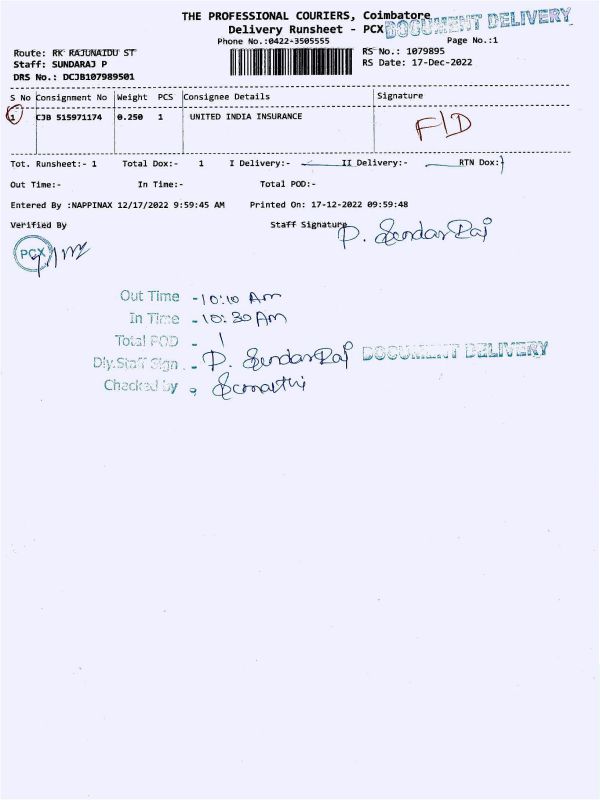 THE PROFESSIONAL COURIERS, Coimbatore
Delivery Runsheet - PCX
DOCUMENT DELIVERY
Phone No.:0422-3505555
Page No.:1
Route: RK RAJUNAIDU ST
RS No.: 1079895
Staff: SUNDARAJ P
RS Date: 17-Dec-2022
DRS No.: DCJB107989501
S No Consignment No Weight PCS Consignee Details Signature
1 CJB 515971174 0.250 1 UNITED INDIA INSURANCE F/D
Tot. Runsheet:- 1 Total Dox:- 1 I Delivery:- II Delivery:- RTN Dox:-
Out Time:- In Time:- Total POD:-
Entered By :NAPPINAX 12/17/2022 9:59:45 AM Printed On: 17-12-2022 09:59:48
Verified By Staff Signature P. SundarRaj
PCX
Out Time - 10:10 Am
In Time - 10:30 Am
Total POD - 1
Dly.Staff Sign. - P. SundarRaj DOCUMENT DELIVERY
Checked by